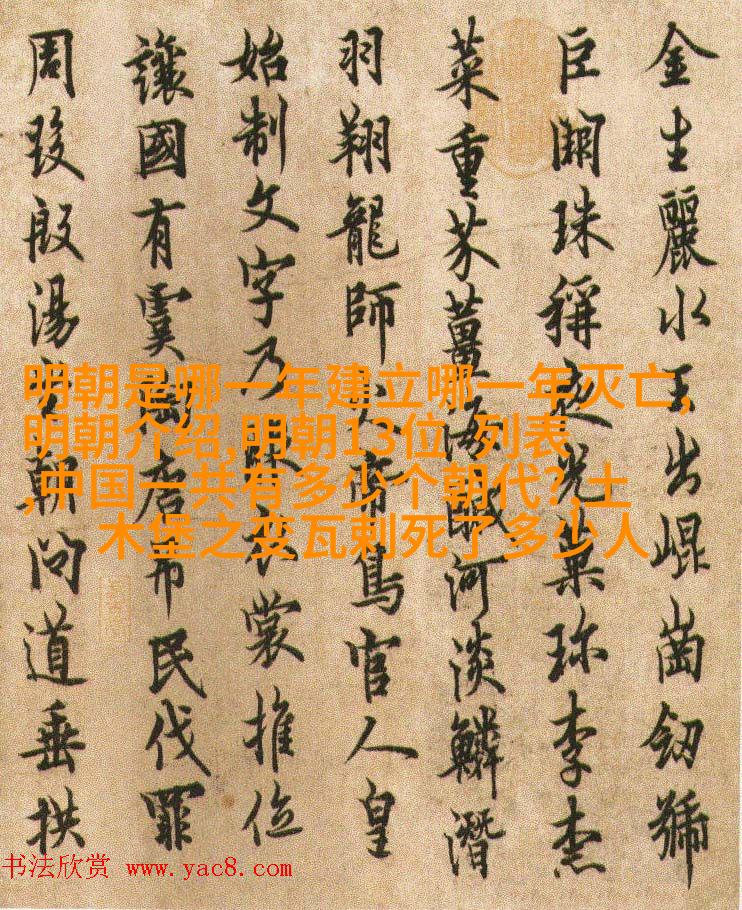 金生麗水玉出崐崗釼號
巨闕珠稱夜光菓珎李柰
菜重芥薑海鹹河淡鱗潛
羽翔龍師火帝鳥官人皇
始制文字乃服衣裳推位
讓國有虞陶唐弔民伐罪
周發殷湯坐朝問道垂拱
明朝是哪一年建立哪一年灭亡,
明朝介绍,明朝13位 列表
,中国一共有多少个朝代? 土
木堡之变瓦剌死了多少人
书法欣赏 www.yac8.com